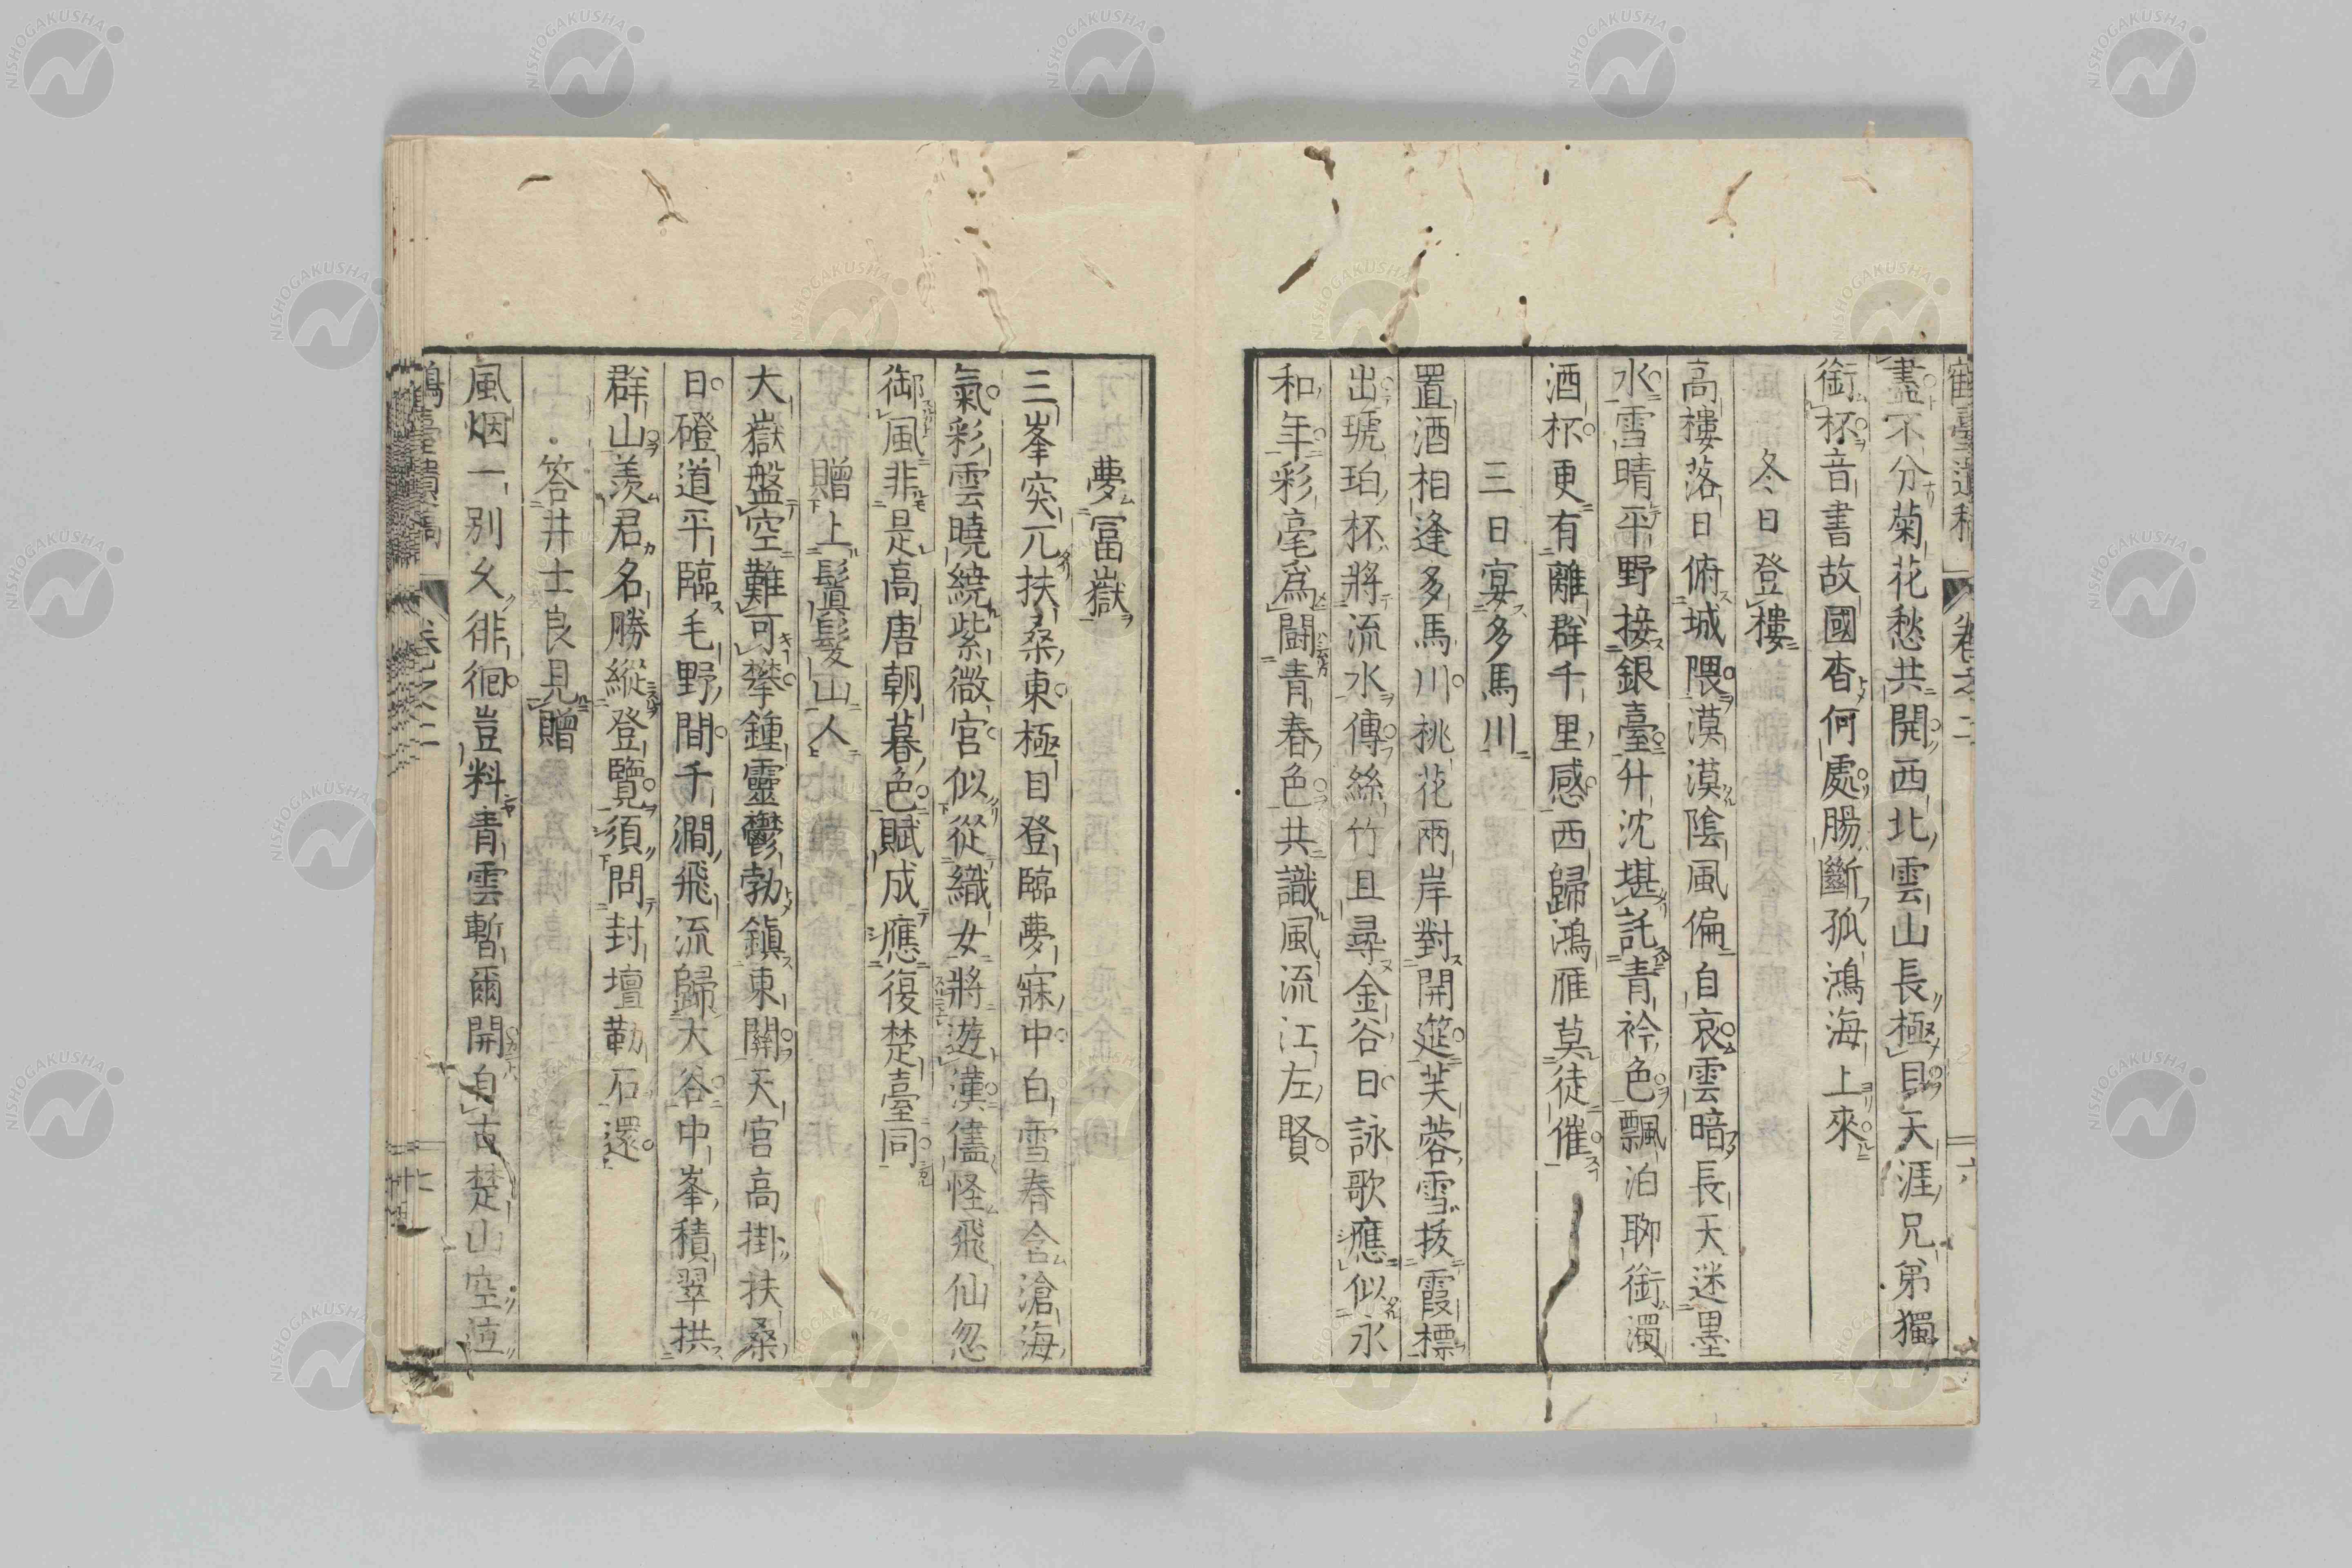 盡不分菊花愁共開西北雲山長極目天涯兄弟獨
銜杯音書故國杳何處腸斷孤鴻海上來
冬日登樓
高樓落日俯城隈漠漠陰風偏自哀雲暗長天迷墨
水雪晴平野接銀臺升沈堪託青衿色飄泊聊銜濁
酒杯更有離群千里感西歸鴻雁莫徒催
三日宴多馬川
置酒相逢多馬川桃花兩岸對開筵芙蓉雪拔霞標
出琥珀杯將流水傳絲竹且尋金谷日詠歌應似永
和年彩毫為鬪青春色共識風流江左賢
夢富嶽
三峯突兀扶桑東極目登臨夢寐中白雪春含滄海
氣彩雲曉繞紫微宮似從織女將遊漢儘怪飛仙忽
御風非是高唐朝暮色賦成應復楚臺同
贈上鬒髮山人
大嶽盤空難可攀鍾靈鬱勃鎮東關天宮高掛扶桑
日磴道平臨毛野間千澗飛流歸大谷中峯積翠拱
群山羨君名勝縱登覽須問封壇勒石還
答井士良見贈
風烟一別久徘徊豈料青雲暫爾開自古楚山空泣
卷之二